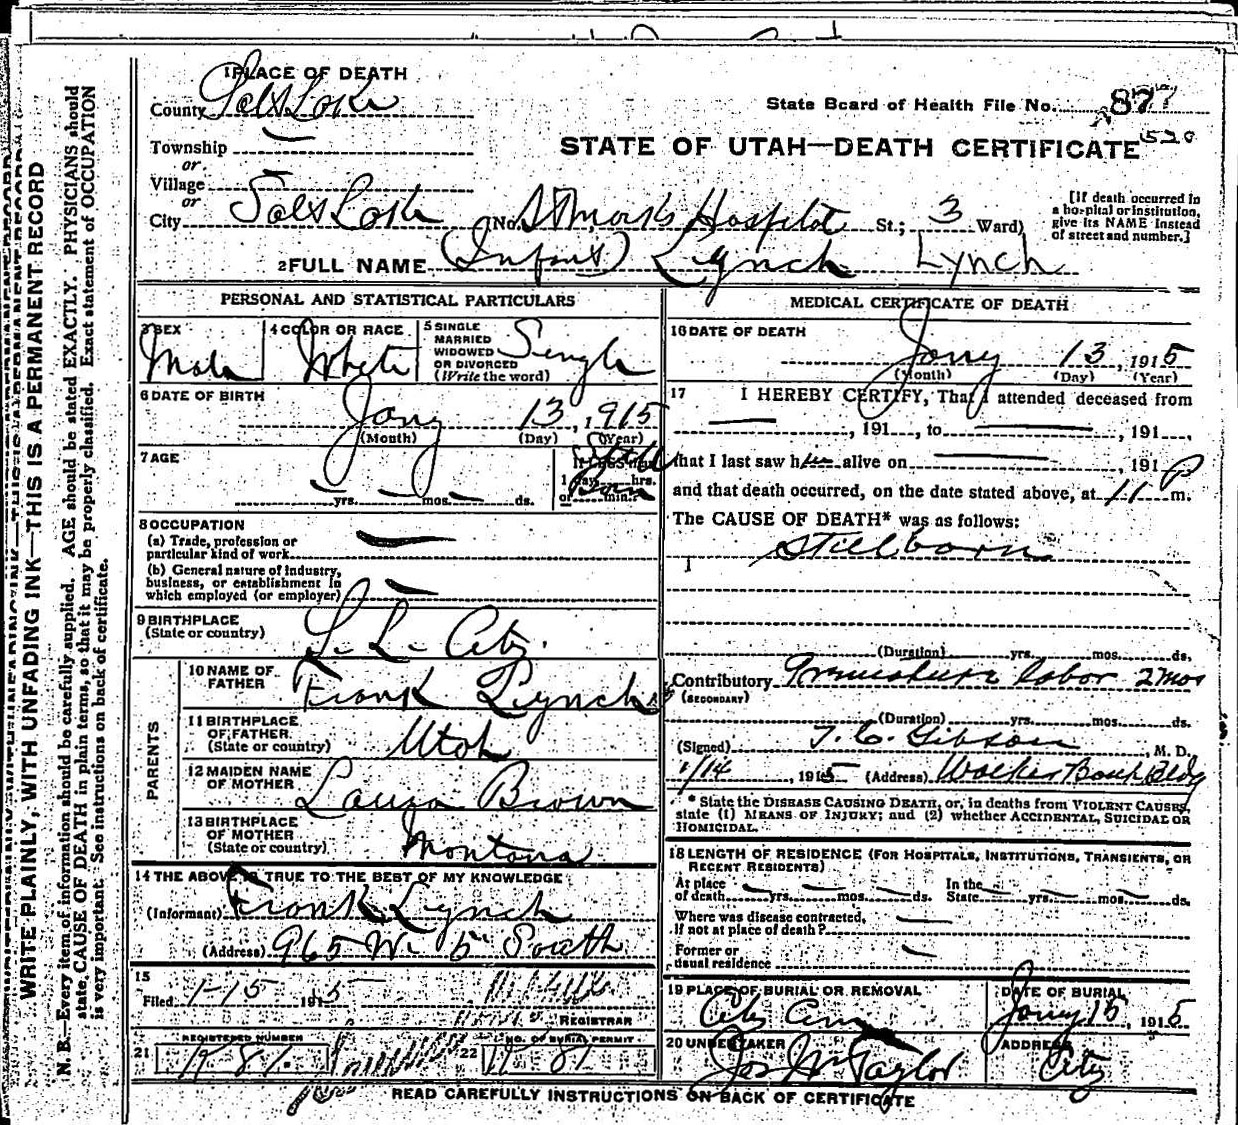 1 PLACE OF DEATH
County Salt Lake
State Board of Health File No. 87
520
Township
STATE OF UTAH—DEATH CERTIFICATE
or
Village
or
City Salt Lake (No. St Marks Hospital St.; 3 Ward)
[If death occurred in a hospital or institution, give its NAME instead of street and number.]
2 FULL NAME (Infant) Lynch Lynch
PERSONAL AND STATISTICAL PARTICULARS
3 SEX Male
4 COLOR OR RACE White
5 SINGLE MARRIED WIDOWED OR DIVORCED (Write the word) Single
6 DATE OF BIRTH Jany 13, 1915
(Month) (Day) (Year)
7 AGE
yrs. mos. ds.
If LESS than 1 day, hrs. or min.?
8 OCCUPATION
(a) Trade, profession or particular kind of work
(b) General nature of industry, business, or establishment in which employed (or employer)
9 BIRTHPLACE (State or country) S. L. City.
PARENTS
10 NAME OF FATHER Frank Lynch
11 BIRTHPLACE OF FATHER (State or country) Utah
12 MAIDEN NAME OF MOTHER Laura Brown
13 BIRTHPLACE OF MOTHER (State or country) Montana
14 THE ABOVE IS TRUE TO THE BEST OF MY KNOWLEDGE
(Informant) Frank Lynch
(Address) 965 W. 5" South
15
Filed 1-15 1915
REGISTRAR
REGISTERED NUMBER
21 K 81.
NO. OF BURIAL PERMIT
22 81
MEDICAL CERTIFICATE OF DEATH
16 DATE OF DEATH
Jany 13, 1915
(Month) (Day) (Year)
17 I HEREBY CERTIFY, That I attended deceased from
, 191 , to , 191 ,
that I last saw h alive on , 191
and that death occurred, on the date stated above, at 11 P m.
The CAUSE OF DEATH* was as follows:
Stillborn
(Duration) yrs. mos. ds.
Contributory Premature labor 2 mos
(SECONDARY)
(Duration) yrs. mos. ds.
(Signed) T. C. Gibson, M. D.
1/14, 1915 (Address) Walker Bank Bldg
* State the DISEASE CAUSING DEATH, or, in deaths from VIOLENT CAUSES, state (1) MEANS OF INJURY; and (2) whether ACCIDENTAL, SUICIDAL OR HOMICIDAL.
18 LENGTH OF RESIDENCE (FOR HOSPITALS, INSTITUTIONS, TRANSIENTS, OR RECENT RESIDENTS)
At place of death yrs. mos. ds. In the State yrs. mos. ds.
Where was disease contracted, If not at place of death?
Former or usual residence
19 PLACE OF BURIAL OR REMOVAL City Cem
DATE OF BURIAL Jany 15, 1915
20 UNDERTAKER Jos Wm Taylor
ADDRESS City
READ CAREFULLY INSTRUCTIONS ON BACK OF CERTIFICATE
WRITE PLAINLY, WITH UNFADING INK—THIS IS A PERMANENT RECORD
N. B.—Every item of information should be carefully supplied. AGE should be stated EXACTLY. PHYSICIANS should
state CAUSE OF DEATH in plain terms, so that it may be properly classified. Exact statement of OCCUPATION
is very important. See instructions on back of certificate.